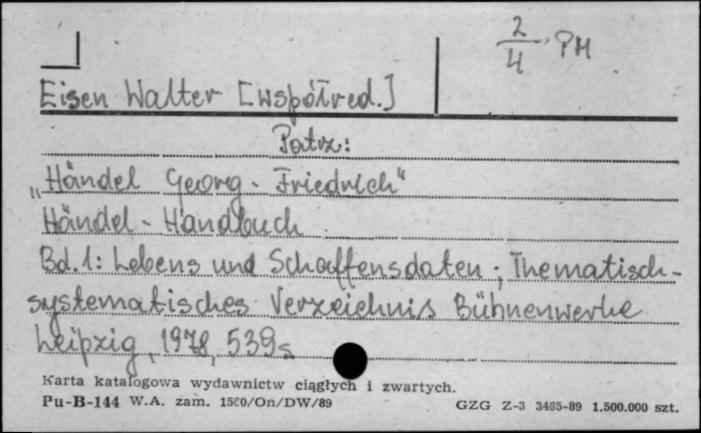 2/4 PM
Eisen Walter [współred.]
Patrz:
„Händel Georg-Friedrich“
Händel-Handbuch
Bd.1: Lebens und Schaffensdaten; Thematisch-
systematisches Verzeichnis Bühnenwerke
Leipzig, 1978, 539s
Karta katalogowa wydawnictw ciągłych i zwartych.
Pu-B-144 W.A. zam. 1560/On/DW/89 GZG Z-3 3465-89 1.500.000 szt.